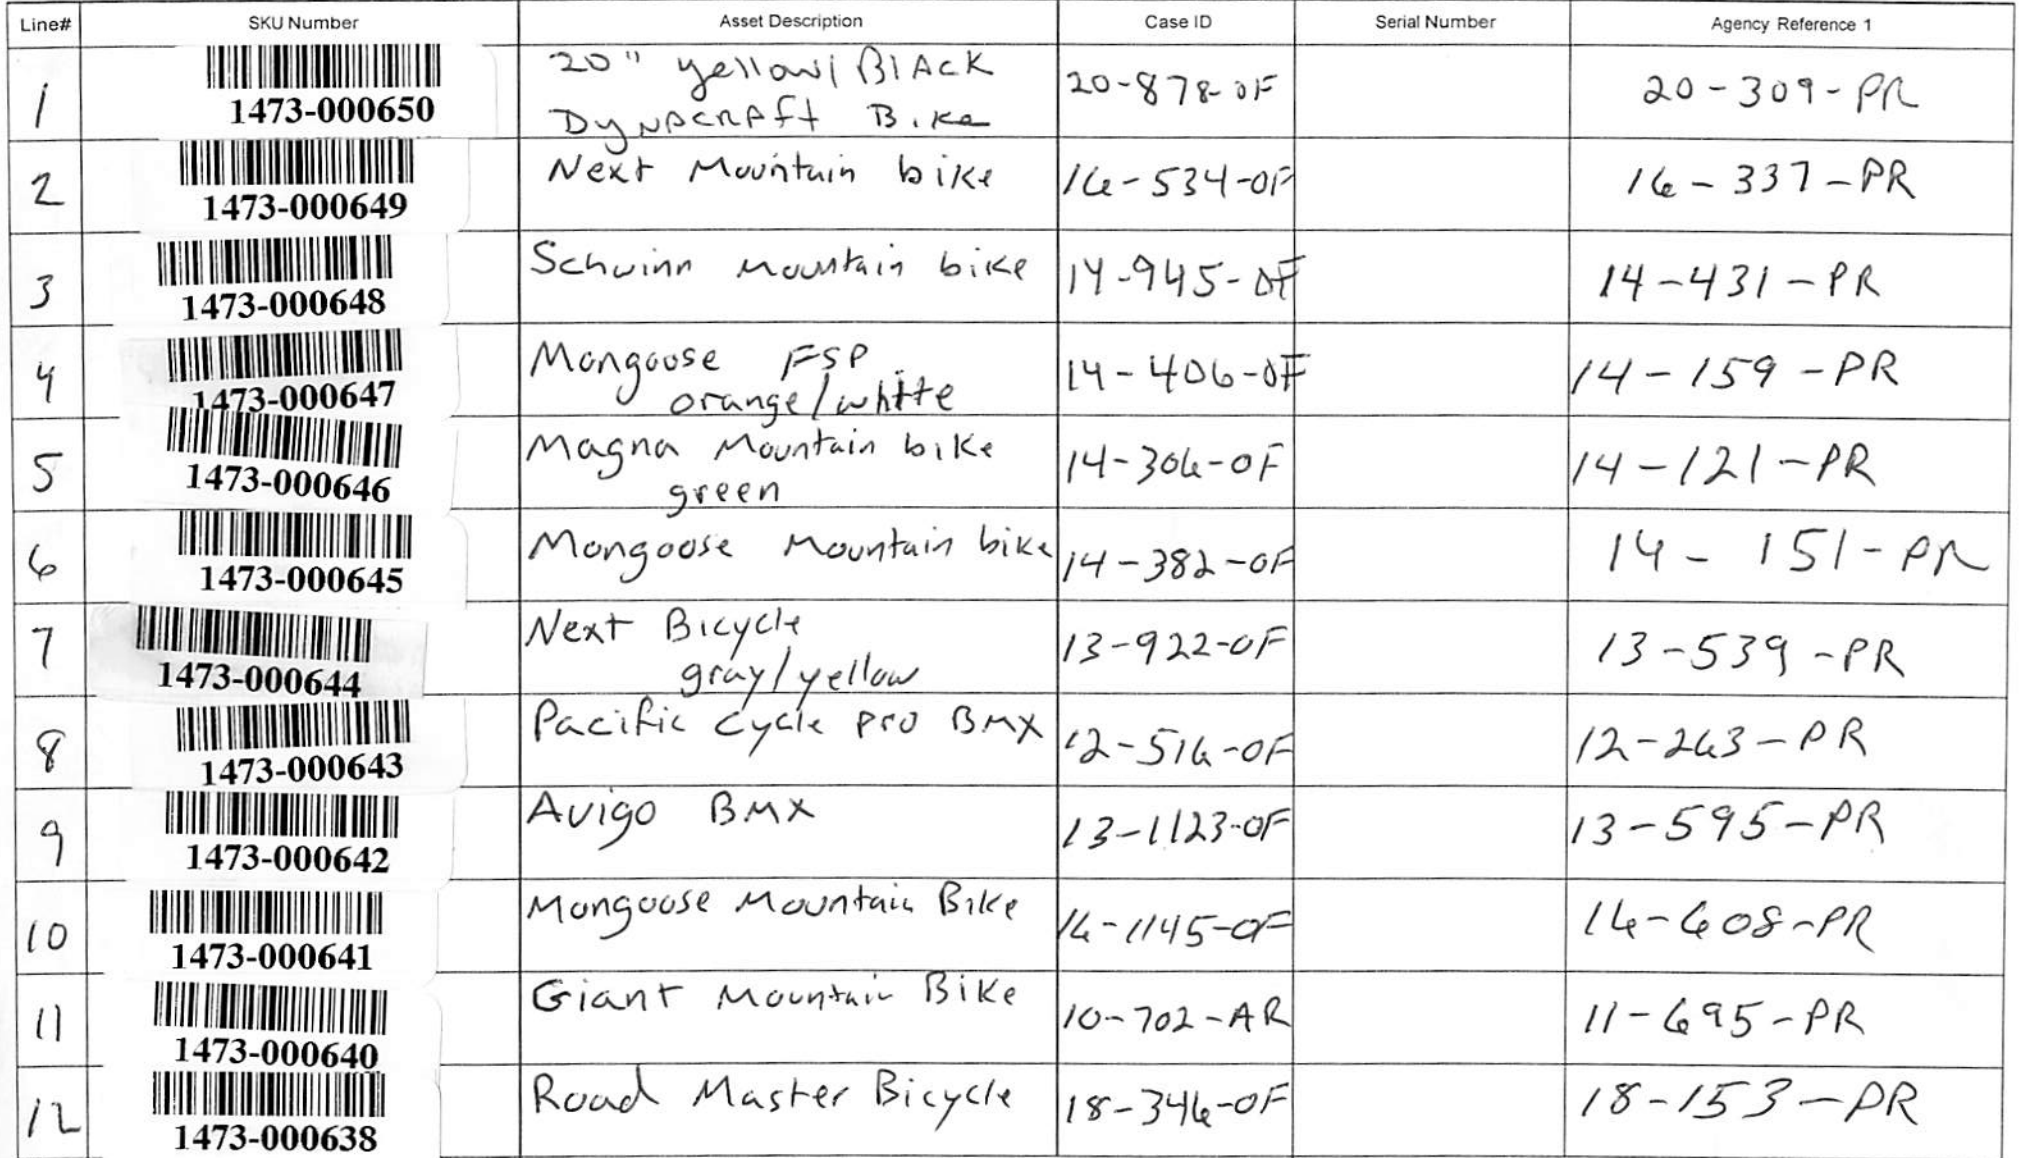 Line# SKU Number Asset Description Case ID Serial Number Agency Reference 1
1 1473-000650 20" yellow/BlAcK DyNAcRAft Bike 20-878-OF 20-309-PR
2 1473-000649 Next Mountain bike 16-534-OF 16-337-PR
3 1473-000648 Schwinn Mountain bike 14-945-OF 14-431-PR
4 1473-000647 Mongoose FSP orange/white 14-406-OF 14-159-PR
5 1473-000646 Magna Mountain bike green 14-306-OF 14-121-PR
6 1473-000645 Mongoose Mountain bike 14-382-OF 14-151-PR
7 1473-000644 Next Bicycle gray/yellow 13-922-OF 13-539-PR
8 1473-000643 Pacific Cycle pro BMX 12-516-OF 12-263-PR
9 1473-000642 Avigo BMX 13-1123-OF 13-595-PR
10 1473-000641 Mongoose Mountain Bike 16-1145-OF 16-608-PR
11 1473-000640 Giant Mountain Bike 10-702-AR 11-695-PR
12 1473-000638 Road Master Bicycle 18-346-OF 18-153-PR